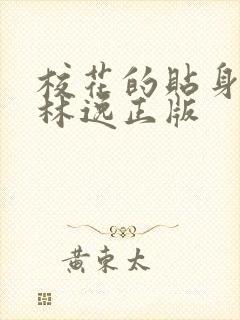 校花的貼身
林逸正版
黄東太